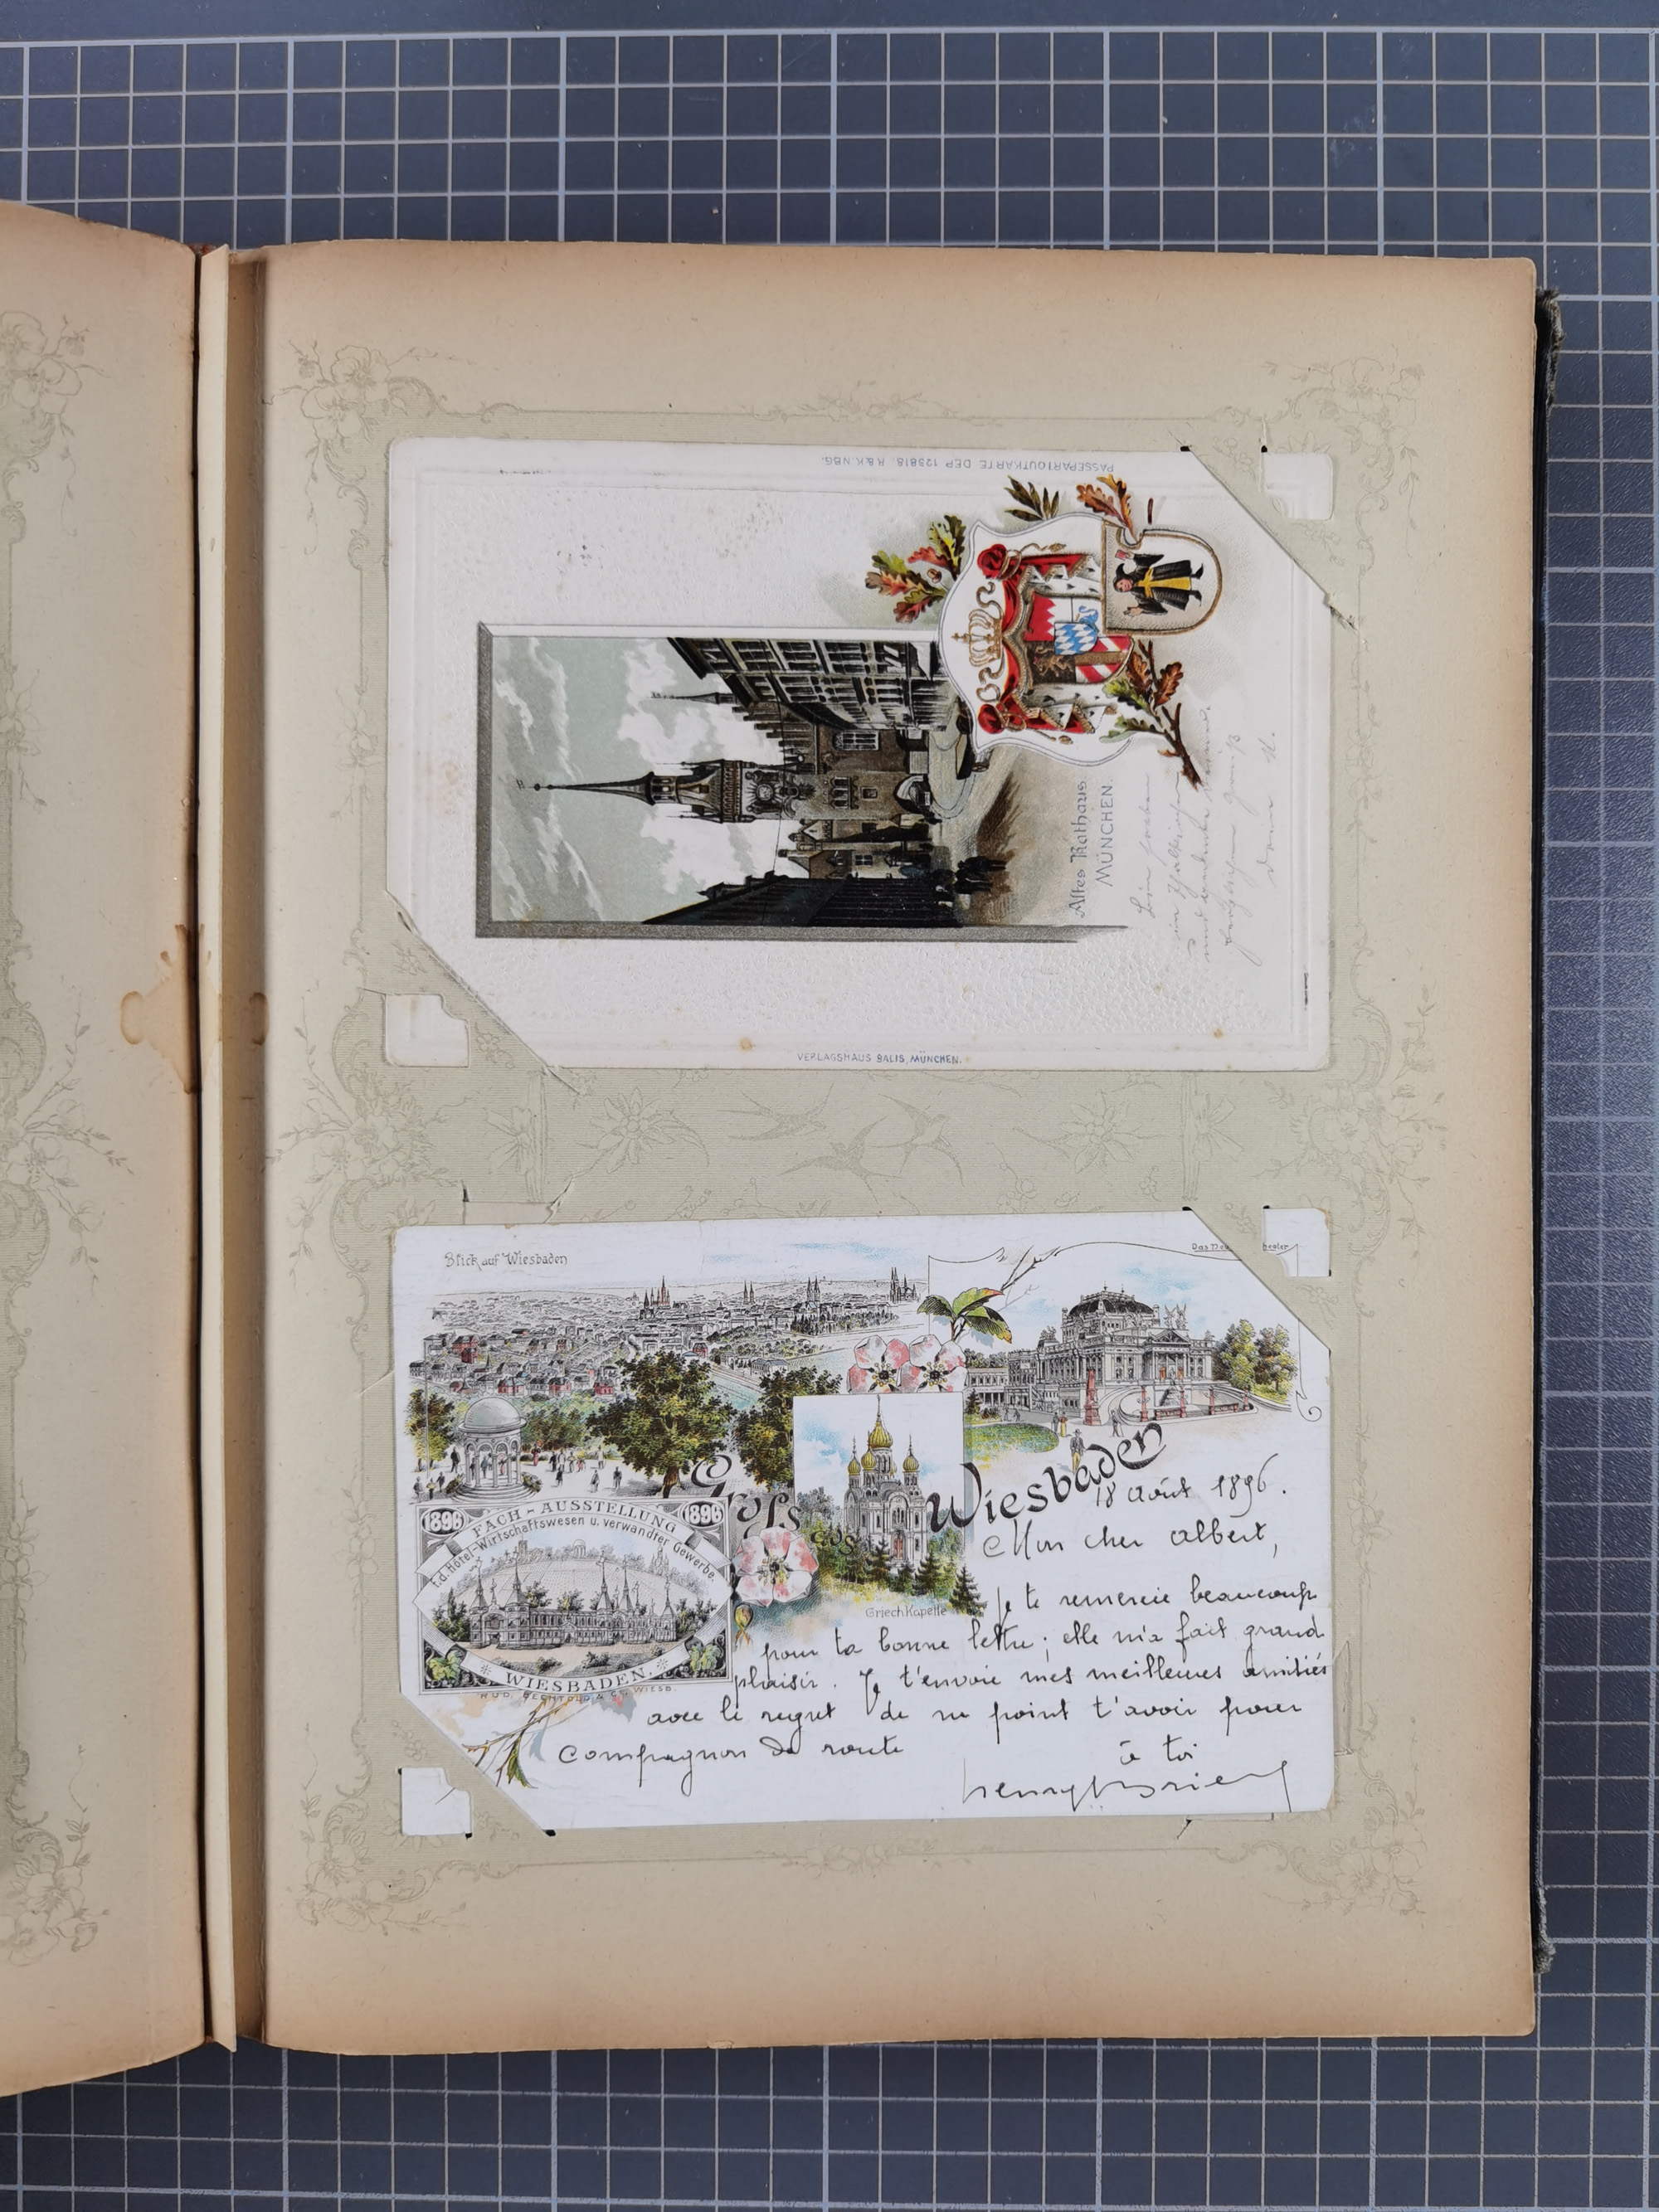 PASSEPARTOUTKARTE DEP. 123818. K & K. NBG.
Altes Rathaus
MÜNCHEN.
VERLAGSHAUS BALIS, MÜNCHEN.
Blick auf Wiesbaden
Das Neu
heater
Gruss aus Wiesbaden
1896 FACH-AUSSTELLUNG 1896
f.d. Hôtel-Wirtschaftswesen u. verwandter Gewerbe
WIESBADEN.
RUD. BECHTOLD & Co. WIESB.
Griech. Kapelle
18 août 1896.
Mon cher Albert,
Je te remercie beaucoup
pour ta bonne lettre; elle m'a fait grand
plaisir. Je t'envoie mes meilleures amitiés
avec le regret de ne point t'avoir pour
compagnon de route
à toi